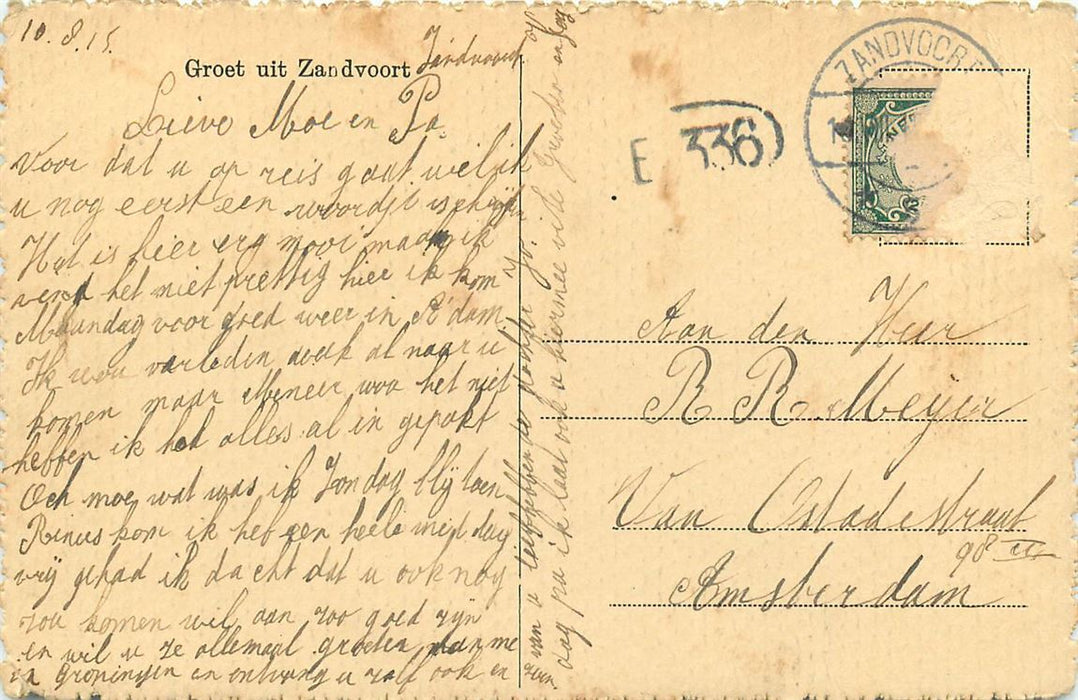 10.8.15.
Groet uit Zandvoort Zandvoort
Lieve Moe en Pa
Voor dat u op reis gaat wil ik
u nog eerst een woordje schrijfen
Het is hier erg mooi maar ik
vend het niet prettig hier ik kom
Maandag voor goed weer in A'dam
Ik wou verleden week al naar u
komen maar Meneer wou het niet
hebben ik had alles al in gepakt
Och moe wat was ik Zondag blij toen
Rinus kom ik heb een heele mid dag
vrij gehad ik dacht dat u ook nog
zou komen wil aan zoo goed zijn
en wil u ze allemaal groeten van me
in Groningen en ontvang u zelf ook en
van u liefhebbende dochter Jo.
dag pa ik laat ook u hiermee vele
E 336
ZANDVOORT
NED
Aan den Heer
R R Meyer
Van Ostadestraat
98 III
Amsterdam